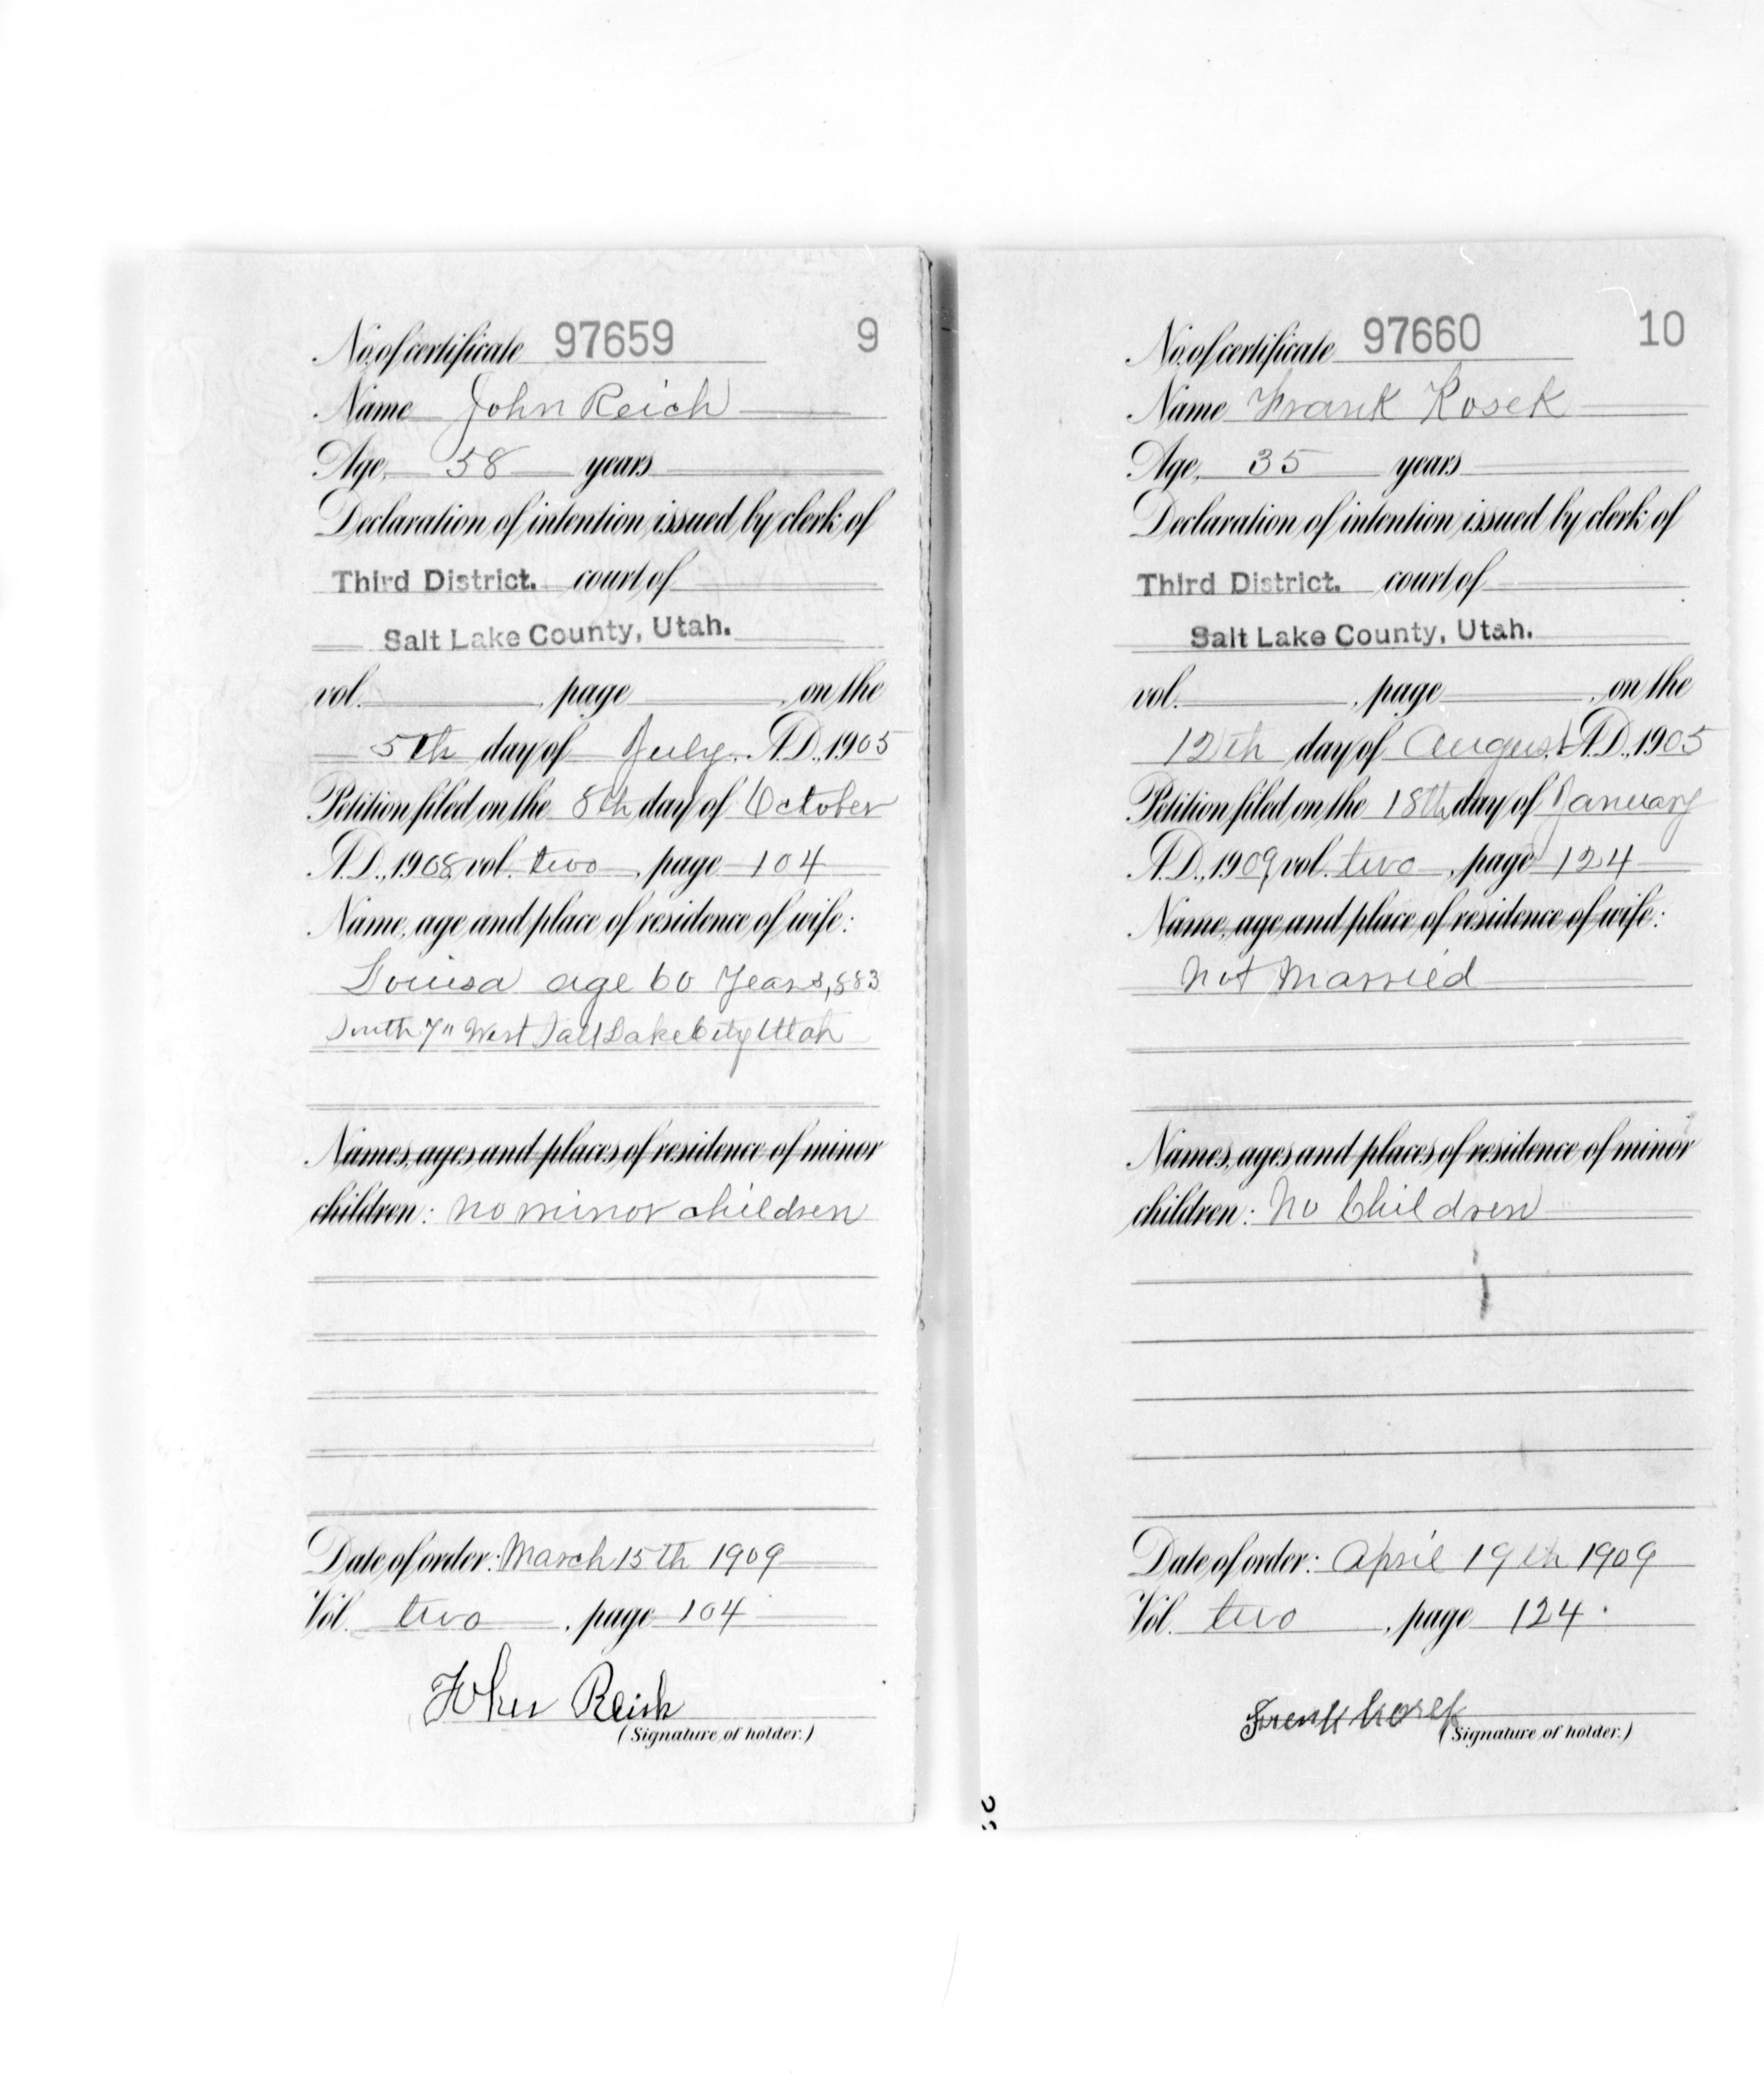 No. of certificate 97659 9
Name John Reich
Age, 58 years
Declaration of intention issued by clerk of
Third District. court of
Salt Lake County, Utah.
vol. , page , on the
5th day of July. A.D., 1905
Petition filed on the 8th day of October
A.D., 1908 vol. two, page 104
Name, age and place of residence of wife:
Louisa age 60 Years, 883
South 7" West Salt Lake City Utah
Names, ages and places of residence of minor
children: no minor children
Date of order: March 15th 1909
Vol. two, page 104
John Reich
(Signature of holder.)
No. of certificate 97660 10
Name Frank Kosek
Age, 35 years
Declaration of intention issued by clerk of
Third District. court of
Salt Lake County, Utah.
vol. , page , on the
12th day of August A.D., 1905
Petition filed on the 18th day of January
A.D., 1909 vol. two, page 124
Name, age and place of residence of wife:
Not Married
Names, ages and places of residence of minor
children: No Children
Date of order: April 19th 1909
Vol. two, page 124.
Frenk Kosek
(Signature of holder.)